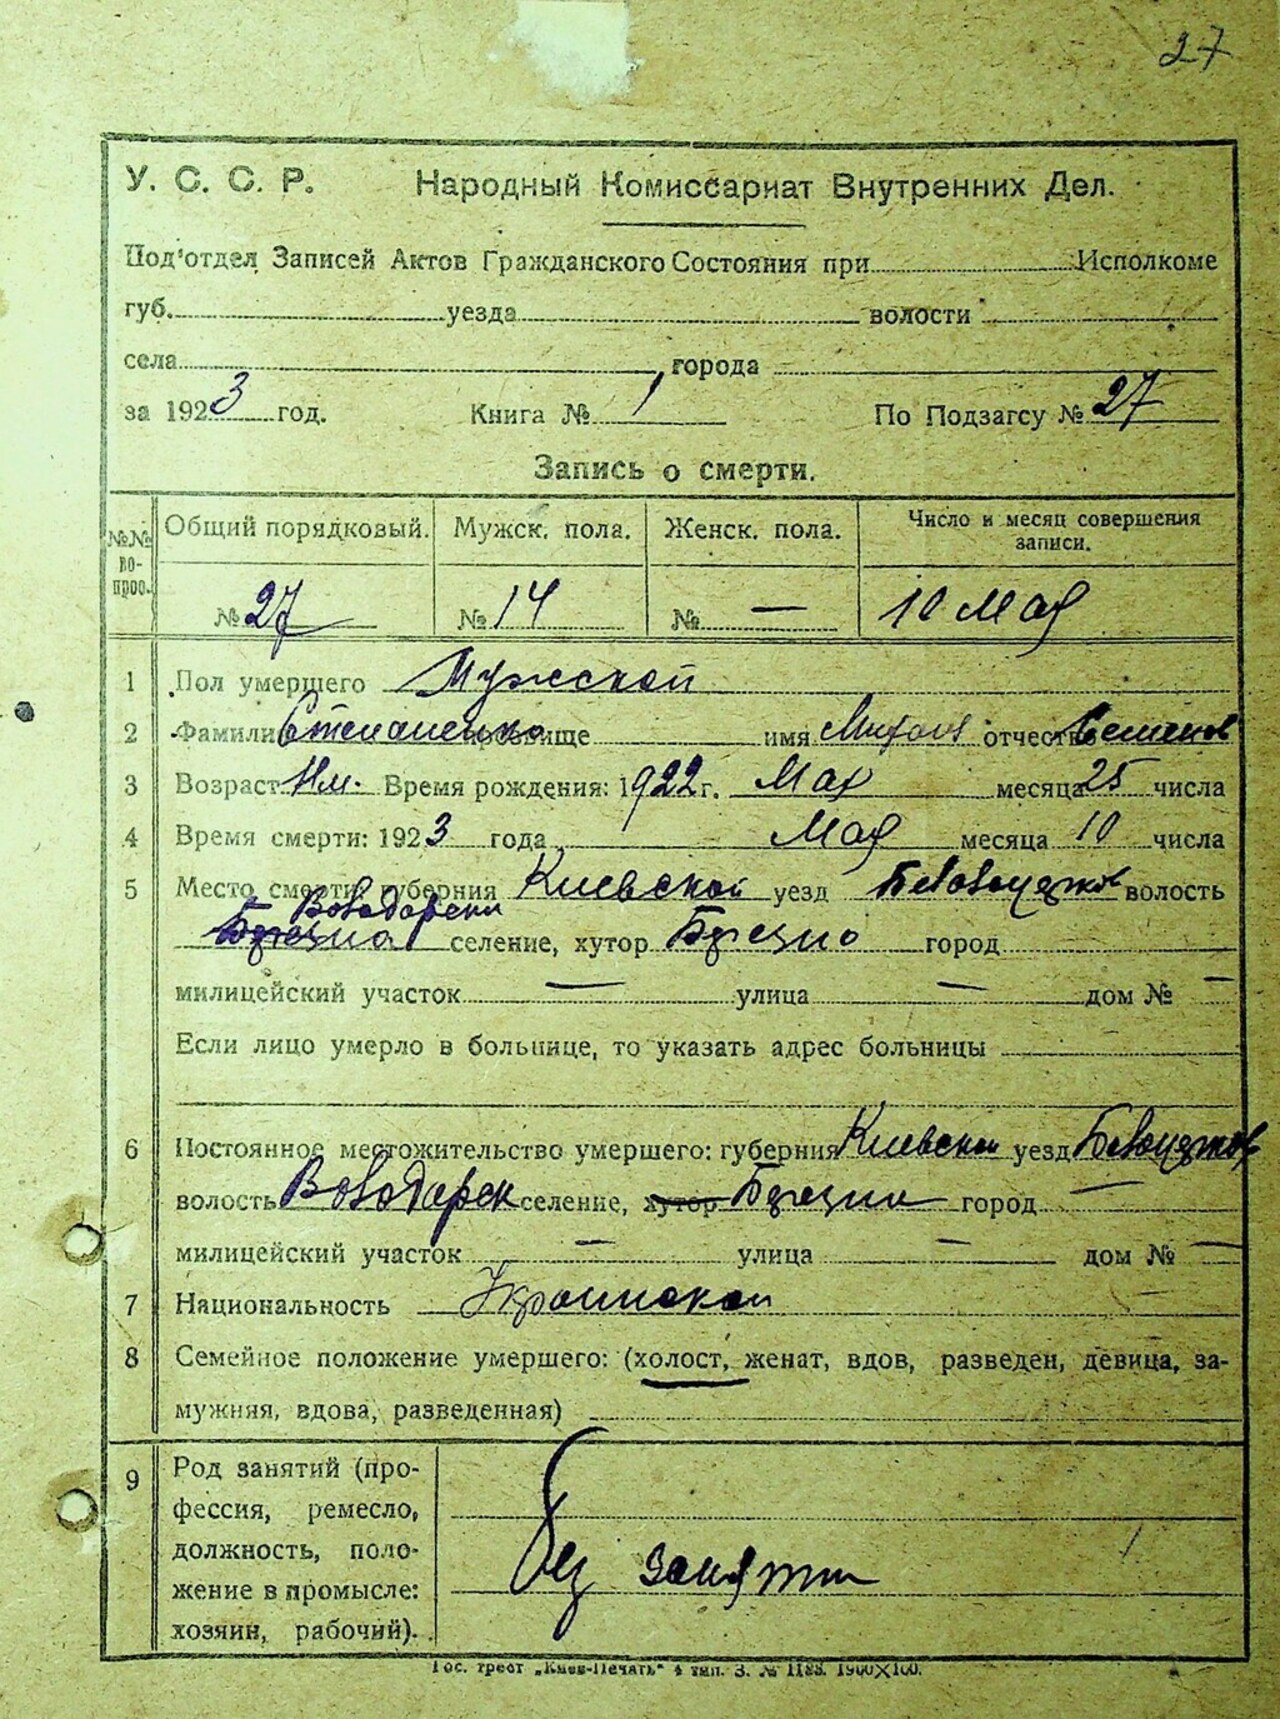 27
У. С. С. Р. Народный Комиссариат Внутренних Дел.
Под'отдел Записей Актов Гражданского Состояния при Исполкоме
губ. уезда волости
села города
за 1923 год. Книга № 1 По Подзагсу № 27
Запись о смерти.
№№ во-прос. Общий порядковый. Мужск. пола. Женск. пола. Число и месяц совершения записи.
№ 27 № 14 № — 10 Мая
1 Пол умершего Мужской
2 Фамилия Степаненко прозвище имя отчество Семенов
3 Возраст Время рождения: 1922 г. Мая месяца 25 числа
4 Время смерти: 1923 года Мая месяца 10 числа
5 Место смерти: губерния Киевской уезд Белоцерков волость
Володарск
Березна селение, хутор Березно город
милицейский участок — улица — дом № —
Если лицо умерло в больнице, то указать адрес больницы
6 Постоянное местожительство умершего: губерния Киевской уезд Белоцерков
волость Володарск селение, хутор Березна город —
милицейский участок — улица — дом № —
7 Национальность
8 Семейное положение умершего: (холост, женат, вдов, разведен, девица, за-
мужняя, вдова, разведенная)
9 Род занятий (про-
фессия, ремесло,
должность, поло-
жение в промысле:
хозяин, рабочий).
без заняти
Гос. трест „Киев-Печать" 4 тип. З. № 1900×100.